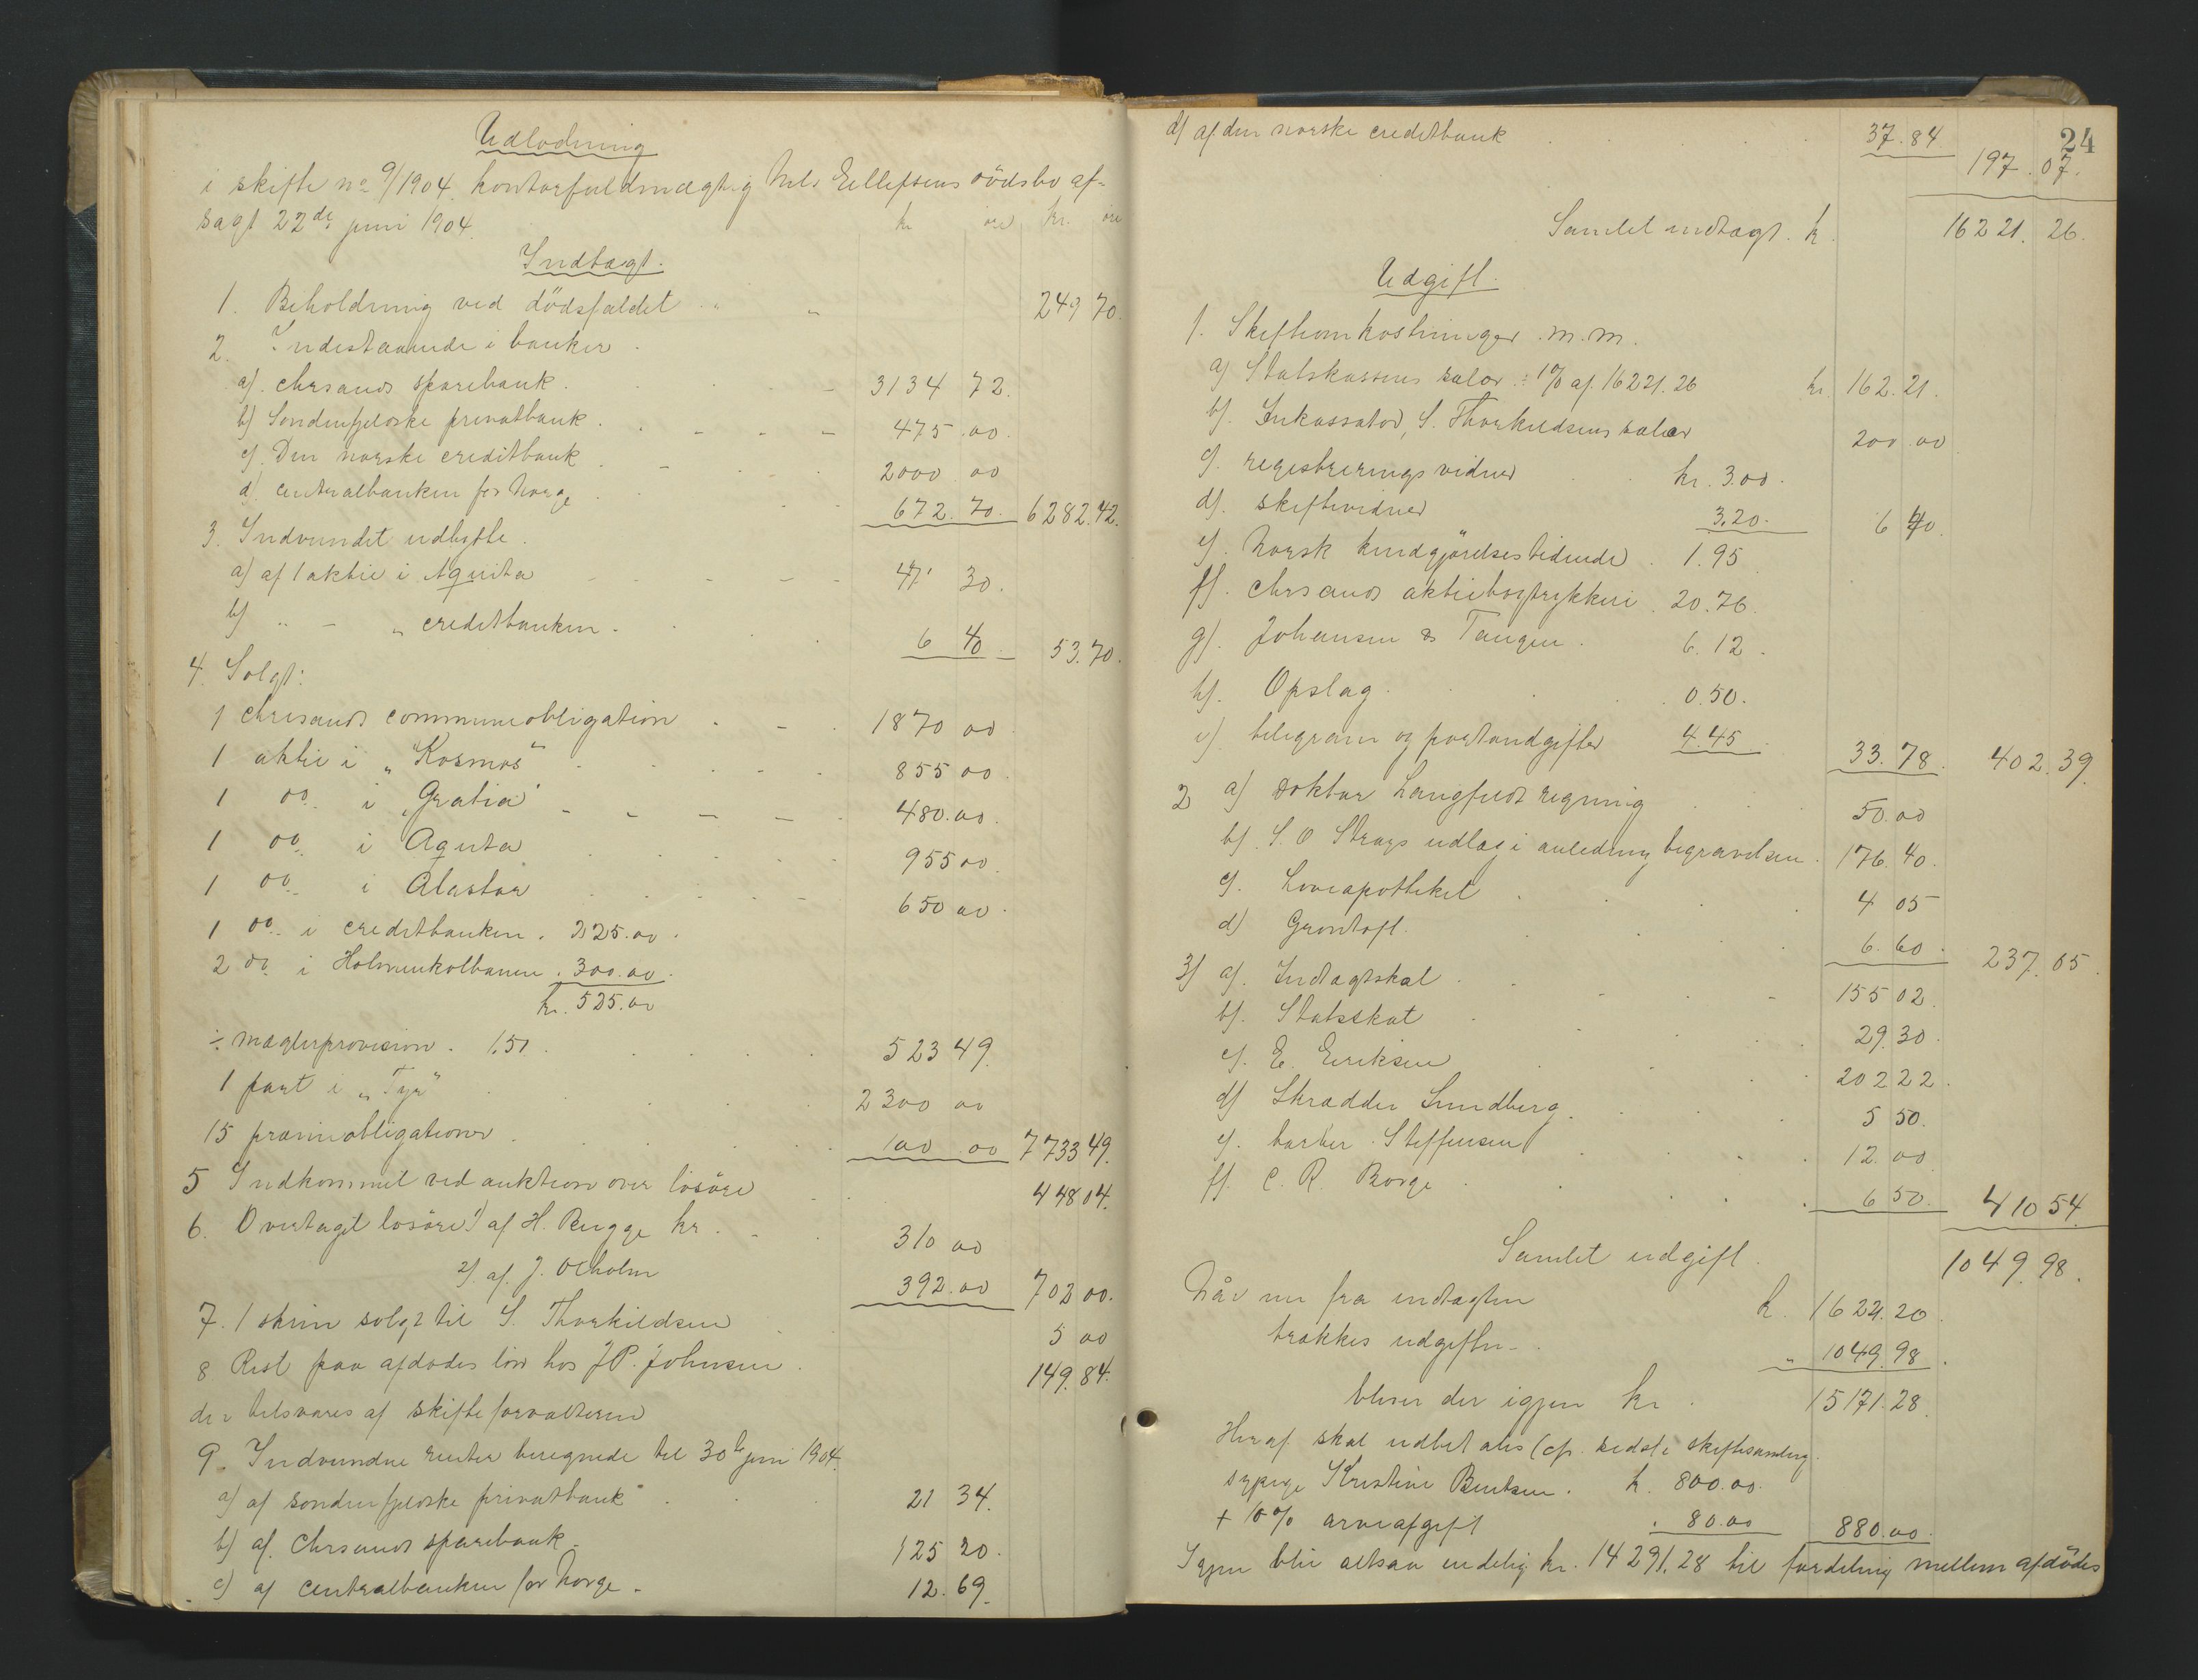 Udlodning
i skifte no 9/1904 kontorfuldmægtig Nils Eellefsens dödsbo af-
sagt 22de juni 1904.
kr öre kr. öre
Indtægt.
1. Beholdning ved dödsfaldet " " 249 70.
2. Indestaaende i banker.
a). Chrsands sparebank. 3134 72.
b) Söndenfjeldske privatbank. 475.00.
c). Den norske creditbank 2000 00
d). Centralbanken for Norge 672.70. 6282.42.
3. Indvundet udbytte.
a) af 1 aktie i Aquita 47 30.
b) " - " creditbanken. 6 40. 53.70.
4. Solgt:
1 Chrisands communeobligation 1870 00
1 aktie i "Kosmos" 855 00.
1 do i "Gratia" 480.00.
1 do. i Aquita 955 00.
1 do. i Alastor 650 00.
1 do. i creditbanken. 225.00.
2 do. i Holmenkolbanen. 300.00.
kr. 525.00
÷ mæglerprovision. 1.51. 523 49.
1 part i "Tyr" 2300 00
15 præmieobligationer 100 00 7733 49.
5 Indkommet ved auktion over lösöre 448 04.
6. Overtaget lösöre 1) af H. Rugge kr. 310 00
2). af. J. Ocholm 392.00 702 00.
7. 1 skrin solgt til S. Thorkildsen 5 00
8 Rest paa afdödes lön hos J.P. Johnsen 149.84.
der tilsvares af skifteforvalteren
9. Indvundne renter beregnede til 30te juni 1904.
a) af söndenfjeldske privatbank 21 34.
b) af. Chrsands sparebank. 125 20.
c) af centralbanken for Norge. 12.69.
24
d) af den norske creditbank 37.84 197.07.
Samlet indtægt. k. 16221. 26.
Udgift.
1. Skifteomkostninger m.m.
a) Statskassens salær ÷ 1% af. 16221.26 kr. 162.21.
b). Inkassator, S. Thorkildsens salær 200.00
c). registreringsvidner kr. 3.00.
d). skiftevidner 3.20. 6 40.
e). Norsk kundgjörelsestidende 1.95
f). Chrsands aktiebogtrykkeri. 20.76.
g). Johansen & Tangen. 6.12.
h). Opslag. 0.50.
i). telegram og portoudgifter 4.45. 33.78. 402.39.
2 a) Doktor Langfeldt regning 50.00
b). S. O Strays udlæg i anledning begravelsen. 176.40.
c). Löveapotheket 4 05
d) Grontoft. 6.60. 237.05.
3) a). Indtægtskat 155 02.
b). Statsskat 29.30.
c). E. Eeriksen 202 22.
d) Skrædder Lundberg. 5 50.
e). barber. Steffensen 12.00
f). C. R. Borge 6 50. 410 54.
Samlet udgift. 1049.98.
Når nu fra indtægten k. 16221.20
trækkes udgiften " 1049.98.
bliver der igjen kr 15171.28.
Heraf skal udbetales (cfr. sidste skiftesamling.
sypige Kristine Berntsen. k. 800.00.
+ 10% arveafgift 80.00 880.00.
Igjen blir altsaa endelig kr. 14291.28 til fordeling mellem afdödes